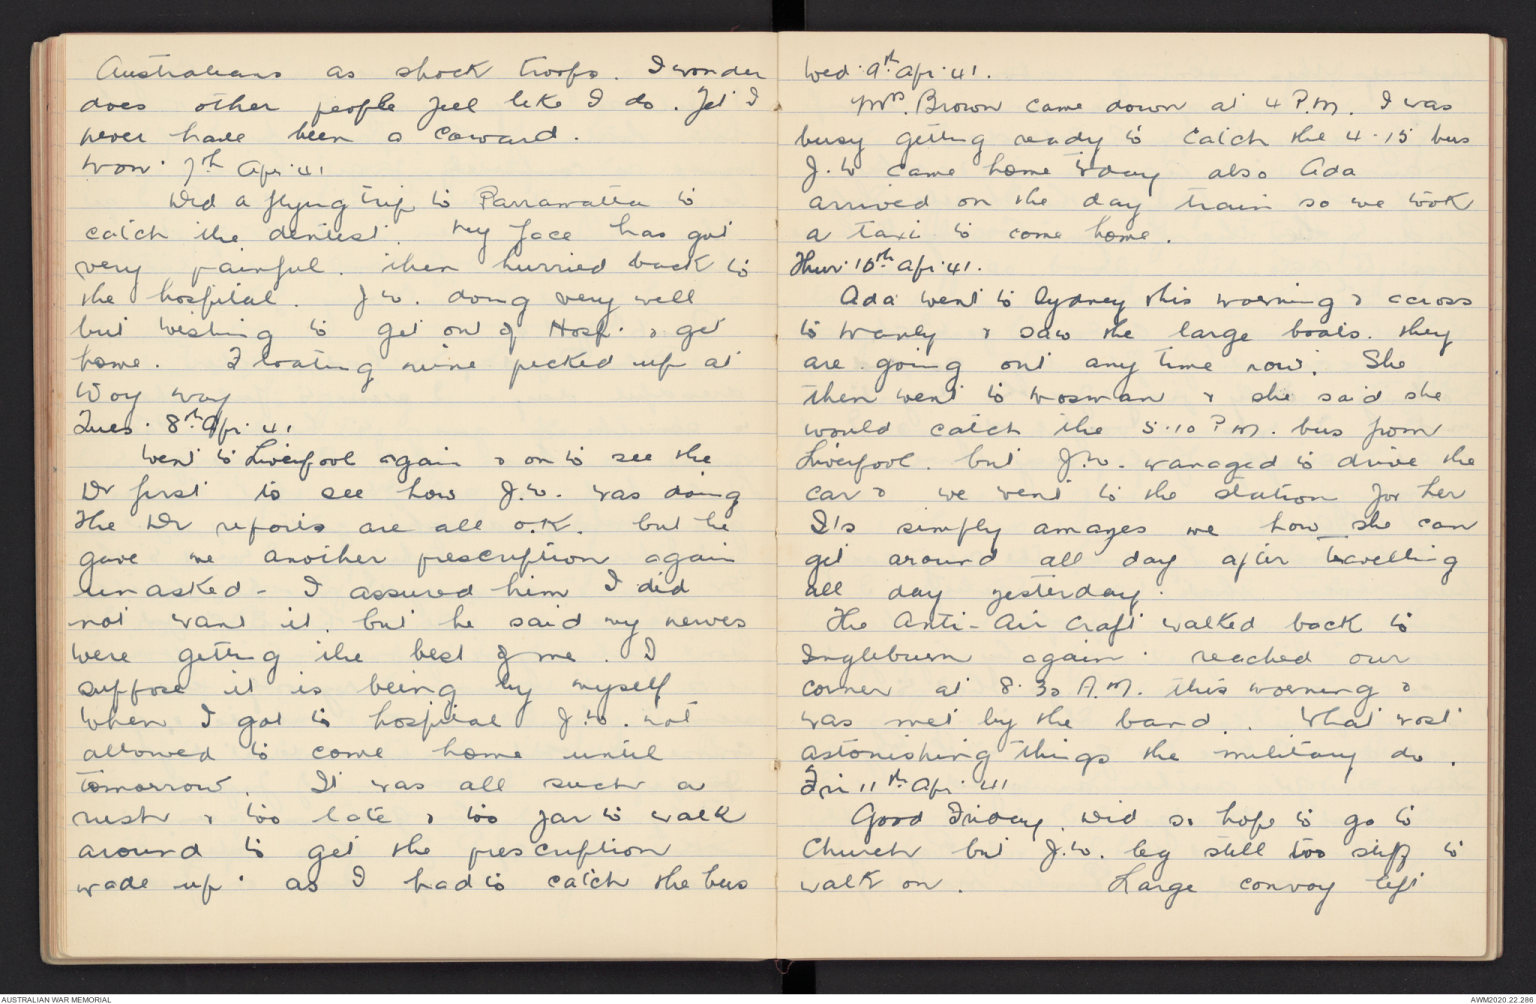 Australians as shock troops. I wonder
does other people feel like I do. Yet I
never have been a coward.
Mon. 7th Apr. 41
Did a flying trip to Parramatta to
catch the dentist. My face has got
very painful. then hurried back to
the hospital. J.W. doing very well
but wishing to get out of Hosp. & get
home. Floating mine picked up at
Woy Woy
Tues. 8th Apr. 41
Went to Liverpool again & on to see the
Dr first to see how J.W. was doing
The Dr reports are all O.K. but he
gave me another prescription again
unasked - I assured him I did
not want it. but he said my nerves
were getting the best of me. I
suppose it is being by myself
when I got to hospital J.W. not
allowed to come home until
tomorrow. It was all such a
rush & too late & too far to walk
around to get the prescription
made up. as I had to catch the bus
Wed. 9th Apr. 41.
Mrs. Brown came down at 4 P.M. I was
busy getting ready to catch the 4.15 bus
J.W came home today also Ada
arrived on the day train so we took
a taxi to come home.
Thur. 10th Apr. 41.
Ada went to Sydney this morning & across
to Manly & saw the large boats. they
are going out any time now. She
then went to Mosman & she said she
would catch the 5.10 P.M. bus from
Liverpool. but J.W. managed to drive the
car & we went to the station for her
It's simply amazes me how she can
get around all day after travelling
all day yesterday.
The Anti-Air Craft walked back to
Ingleburn again. reached our
corner at 8.30 A.M. this morning &
was met by the band. . What most
astonishing things the military do.
Fri 11th Apr. 41
Good Friday. Did so hope to go to
Church but J.W. leg still too stiff to
walk on. Large convoy left
AUSTRALIAN WAR MEMORIAL
AWM2020.22.286